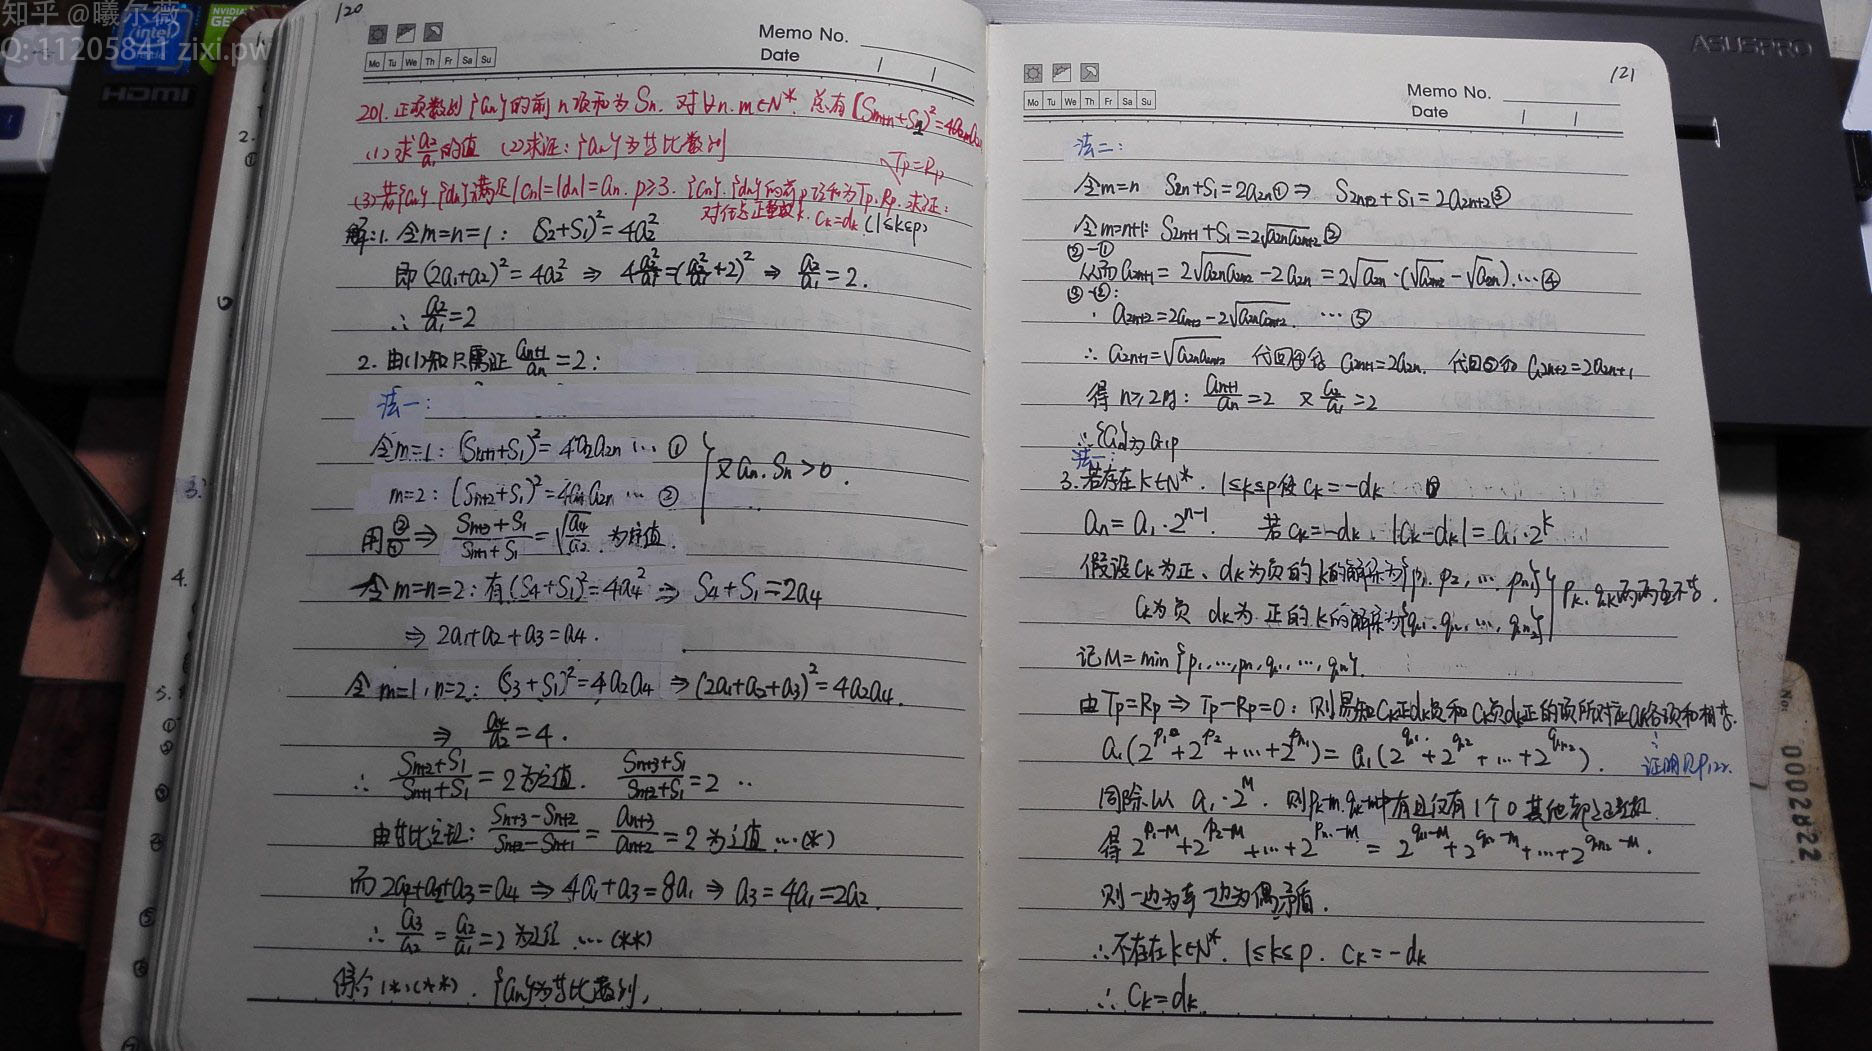 知乎 @曦尔薇
Q: 11205841 zixi.pw
intel
NVIDIA
HDMI
ASUSPRO
120
Memo No.
Date
Mo Tu We Th Fr Sa Su
201. 正项数列{an}的前n项和为Sn. 对∀n.m∈N*. 总有(Sm+n+S1)²=4a2ma2n
(1)求a2/a1的值 (2)求证:{an}为等比数列
Tp=Rp
(3)若{cn} {dn}满足|cn|=|dn|=an. p≥3. {cn}.{dn}的前p项和为Tp.Rp. 求证:
对任意正整数k. ck=dk (1≤k≤p)
解:1. 令m=n=1: (S2+S1)²=4a2²
即(2a1+a2)²=4a2² ⇒ 4a2²/a1²=(a2/a1+2)² ⇒ a2/a1=2.
∴ a2/a1=2
2. 由(1)知只需证 an+1/an=2:
法一:
令m=1: (Sn+1+S1)²=4a2a2n … ①
m=2: (Sn+2+S1)²=4a4a2n … ②
又an.Sn>0.
用②/① ⇒ Sn+2+S1/Sn+1+S1=√a4/a2 为定值.
令m=n=2: 有(S4+S1)²=4a4² ⇒ S4+S1=2a4
⇒ 2a1+a2+a3=a4.
令m=1,n=2: (S3+S1)²=4a2a4 ⇒ (2a1+a2+a3)²=4a2a4.
⇒ a4/a2=4.
∴ Sn+2+S1/Sn+1+S1=2为定值. Sn+3+S1/Sn+2+S1=2 ..
由等比定理: Sn+3-Sn+2/Sn+2-Sn+1=an+3/an+2=2为定值 …(*)
而2a1+a2+a3=a4 ⇒ 4a1+a3=8a1 ⇒ a3=4a1=2a2.
∴ a3/a2=a2/a1=2为定值 …(**)
综合(*)、(**). {an}为等比数列.
121
Memo No.
Date
Mo Tu We Th Fr Sa Su
法二:
令m=n S2n+S1=2a2n① ⇒ S2n+2+S1=2a2n+2③
令m=n+1: S2n+1+S1=2√a2na2n+2②
②-①
从而a2n+1=2√a2na2n+2-2a2n=2√a2n·(√a2n+2-√a2n).…④
③-②:
a2n+2=2a2n+2-2√a2na2n+2. …⑤
∴ a2n+1=√a2na2n+2 代回④得 a2n+1=2a2n. 代回⑤得 a2n+2=2a2n+1
得n≥2时: an+1/an=2 又a2/a1=2
∴{an}为G.P
法一:
3.若存在k∈N*. 1≤k≤p使ck=-dk
an=a1·2n-1. 若ck=-dk, |ck-dk|=a1·2k
假设ck为正、dk为负的k的解集为{p1.p2,…,pn1}
ck为负 dk为正的k的解集为{q1.q2,…,qn2}
pk、qk两两互不等.
记M=min{p1,…,pn,q1,…,qn}.
由Tp=Rp ⇒ Tp-Rp=0: 则易知ck正dk负和ck负dk正的项所对应an各项和相等.
a1(2p1+2p2+…+2pn1)=a1(2q1+2q2+…+2qn2).
证明见P122.
同除以a1·2M. 则pk-m.qk-m中有且仅有1个0其他都是正整数.
得2p1-M+2p2-M+…+2pn1-M=2q1-M+2q2-M+…+2qn2-M.
则一边为奇一边为偶矛盾.
∴不存在k∈N*. 1≤k≤p. ck=-dk
∴ ck=dk.
No.
0002822